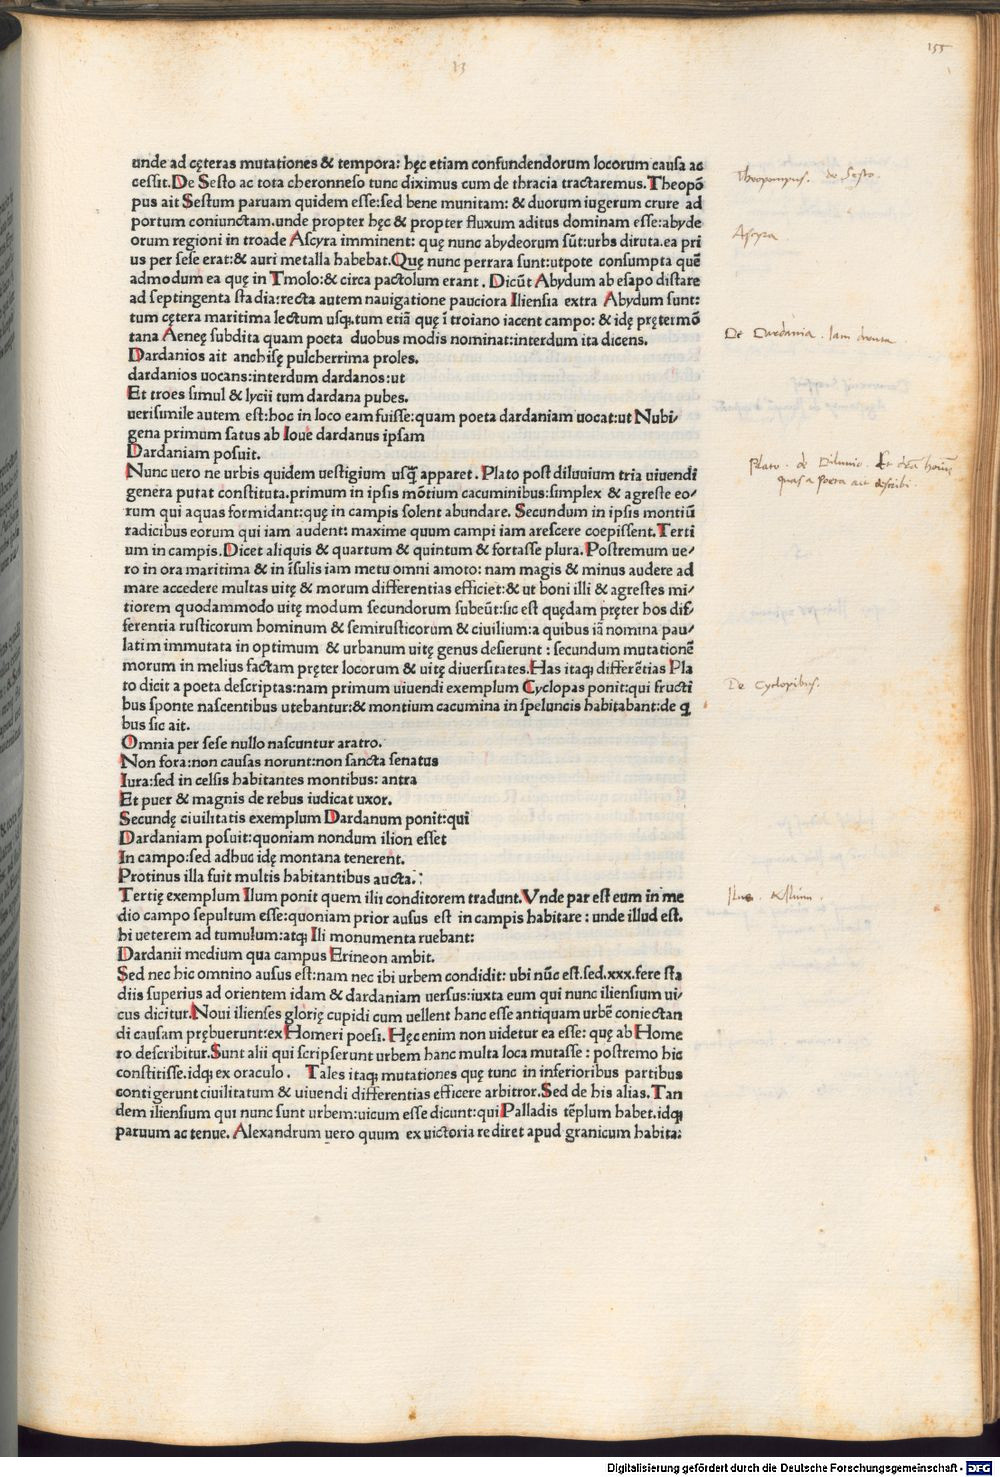 155
13
unde ad cęteras mutationes & tempora: hęc etiam confundendorum locorum causa ac
cessit. De Sesto ac tota cheronneso tunc diximus cum de thracia tractaremus. Theopō
pus ait Sestum paruam quidem esse: sed bene munitam: & duorum iugerum crure ad
portum coniunctam. unde propter hęc & propter fluxum aditus dominam esse: abyde
orum regioni in troade Ascyra imminent: quę nunc abydeorum sūt: urbs diruta. ea pri
us per sese erat: & auri metalla habebat. Quę nunc perrara sunt: utpote consumpta quē
admodum ea quę in Tmolo: & circa pactolum erant. Dicūt Abydum ab esapo distare
ad septingenta stadia: recta autem nauigatione pauciora Iliensia extra Abydum sunt:
tum cętera maritima lectum usq; tum etiā quę ī troiano iacent campo: & idę prętermō
tana Aeneę subdita quam poeta duobus modis nominat: interdum ita dicens.
Dardanios ait anchisę pulcherrima proles.
dardanios uocans: interdum dardanos: ut
Et troes simul & lycii tum dardana pubes.
uerisimile autem est: hoc in loco eam fuisse: quam poeta dardaniam uocat: ut Nubi/
gena primum satus ab Ioue dardanus ipsam
Dardaniam posuit.
Nunc uero ne urbis quidem uestigium usq̄ apparet. Plato post diluuium tria uiuendi
genera putat constituta. primum in ipsis mōtium cacuminibus: simplex & agreste eo/
rum qui aquas formidant: quę in campis solent abundare. Secundum in ipsis montiū
radicibus eorum qui iam audent: maxime quum campi iam arescere coepissent. Terti
um in campis. Dicet aliquis & quartum & quintum & fortasse plura. Postremum ue/
ro in ora maritima & in īsulis iam metu omni amoto: nam magis & minus audere ad
mare accedere multas uitę & morum differentias efficiet: & ut boni illi & agrestes mi/
tiorem quodammodo uitę modum secundorum subeūt: sic est quędam pręter hos dif
ferentia rusticorum hominum & semirusticorum & ciuilium: a quibus iā nomina pau/
latim immutata in optimum & urbanum uitę genus desierunt: secundum mutationē
morum in melius factam pręter locorum & uitę diuersitates. Has itaq; differētias Pla
to dicit a poeta descriptas: nam primum uiuendi exemplum Cyclopas ponit: qui fructi
bus sponte nascentibus utebantur: & montium cacumina in speluncis habitabant: de q
bus sic ait.
Omnia per sese nullo nascuntur aratro.
Non fora: non causas norunt: non sancta senatus
Iura: sed in celsis habitantes montibus: antra
Et puer & magnis de rebus iudicat uxor.
Secundę ciuilitatis exemplum Dardanum ponit: qui
Dardaniam posuit: quoniam nondum ilion esset
In campo: sed adhuc idę montana tenerent.
Protinus illa fuit multis habitantibus aucta.
Tertię exemplum Ilum ponit quem ilii conditorem tradunt. Vnde par est eum in me
dio campo sepultum esse: quoniam prior ausus est in campis habitare: unde illud est.
hi ueterem ad tumulum: atq; Ili monumenta ruebant:
Dardanii medium qua campus Erineon ambit.
Sed nec hic omnino ausus est: nam nec ibi urbem condidit: ubi nūc est. sed. xxx. fere sta
diis superius ad orientem idam & dardaniam uersus: iuxta eum qui nunc iliensium ui/
cus dicitur. Noui ilienses glorię cupidi cum uellent hanc esse antiquam urbē coniectan
di causam prębuerunt: ex Homeri poesi. Hęc enim non uidetur ea esse: quę ab Home
ro describitur. Sunt alii qui scripserunt urbem hanc multa loca mutasse: postremo hic
constitisse. idq; ex oraculo. Tales itaq; mutationes quę tunc in inferioribus partibus
contigerunt ciuilitatum & uiuendi differentias efficere arbitror. Sed de his alias. Tan
dem iliensium qui nunc sunt urbem: uicum esse dicunt: qui Palladis tēplum habet. idq;
paruum ac tenue. Alexandrum uero quum ex uictoria rediret apud granicum habita:
Theopompus. de Sesto.
Ascyra
De Dardania. Iam diruta
Plato. de Diluuio. Et
quas a Poeta ait describi.
De Cyclopibus.
Ilus. & Ilium.
Digitalisierung gefördert durch die Deutsche Forschungsgemeinschaft - DFG